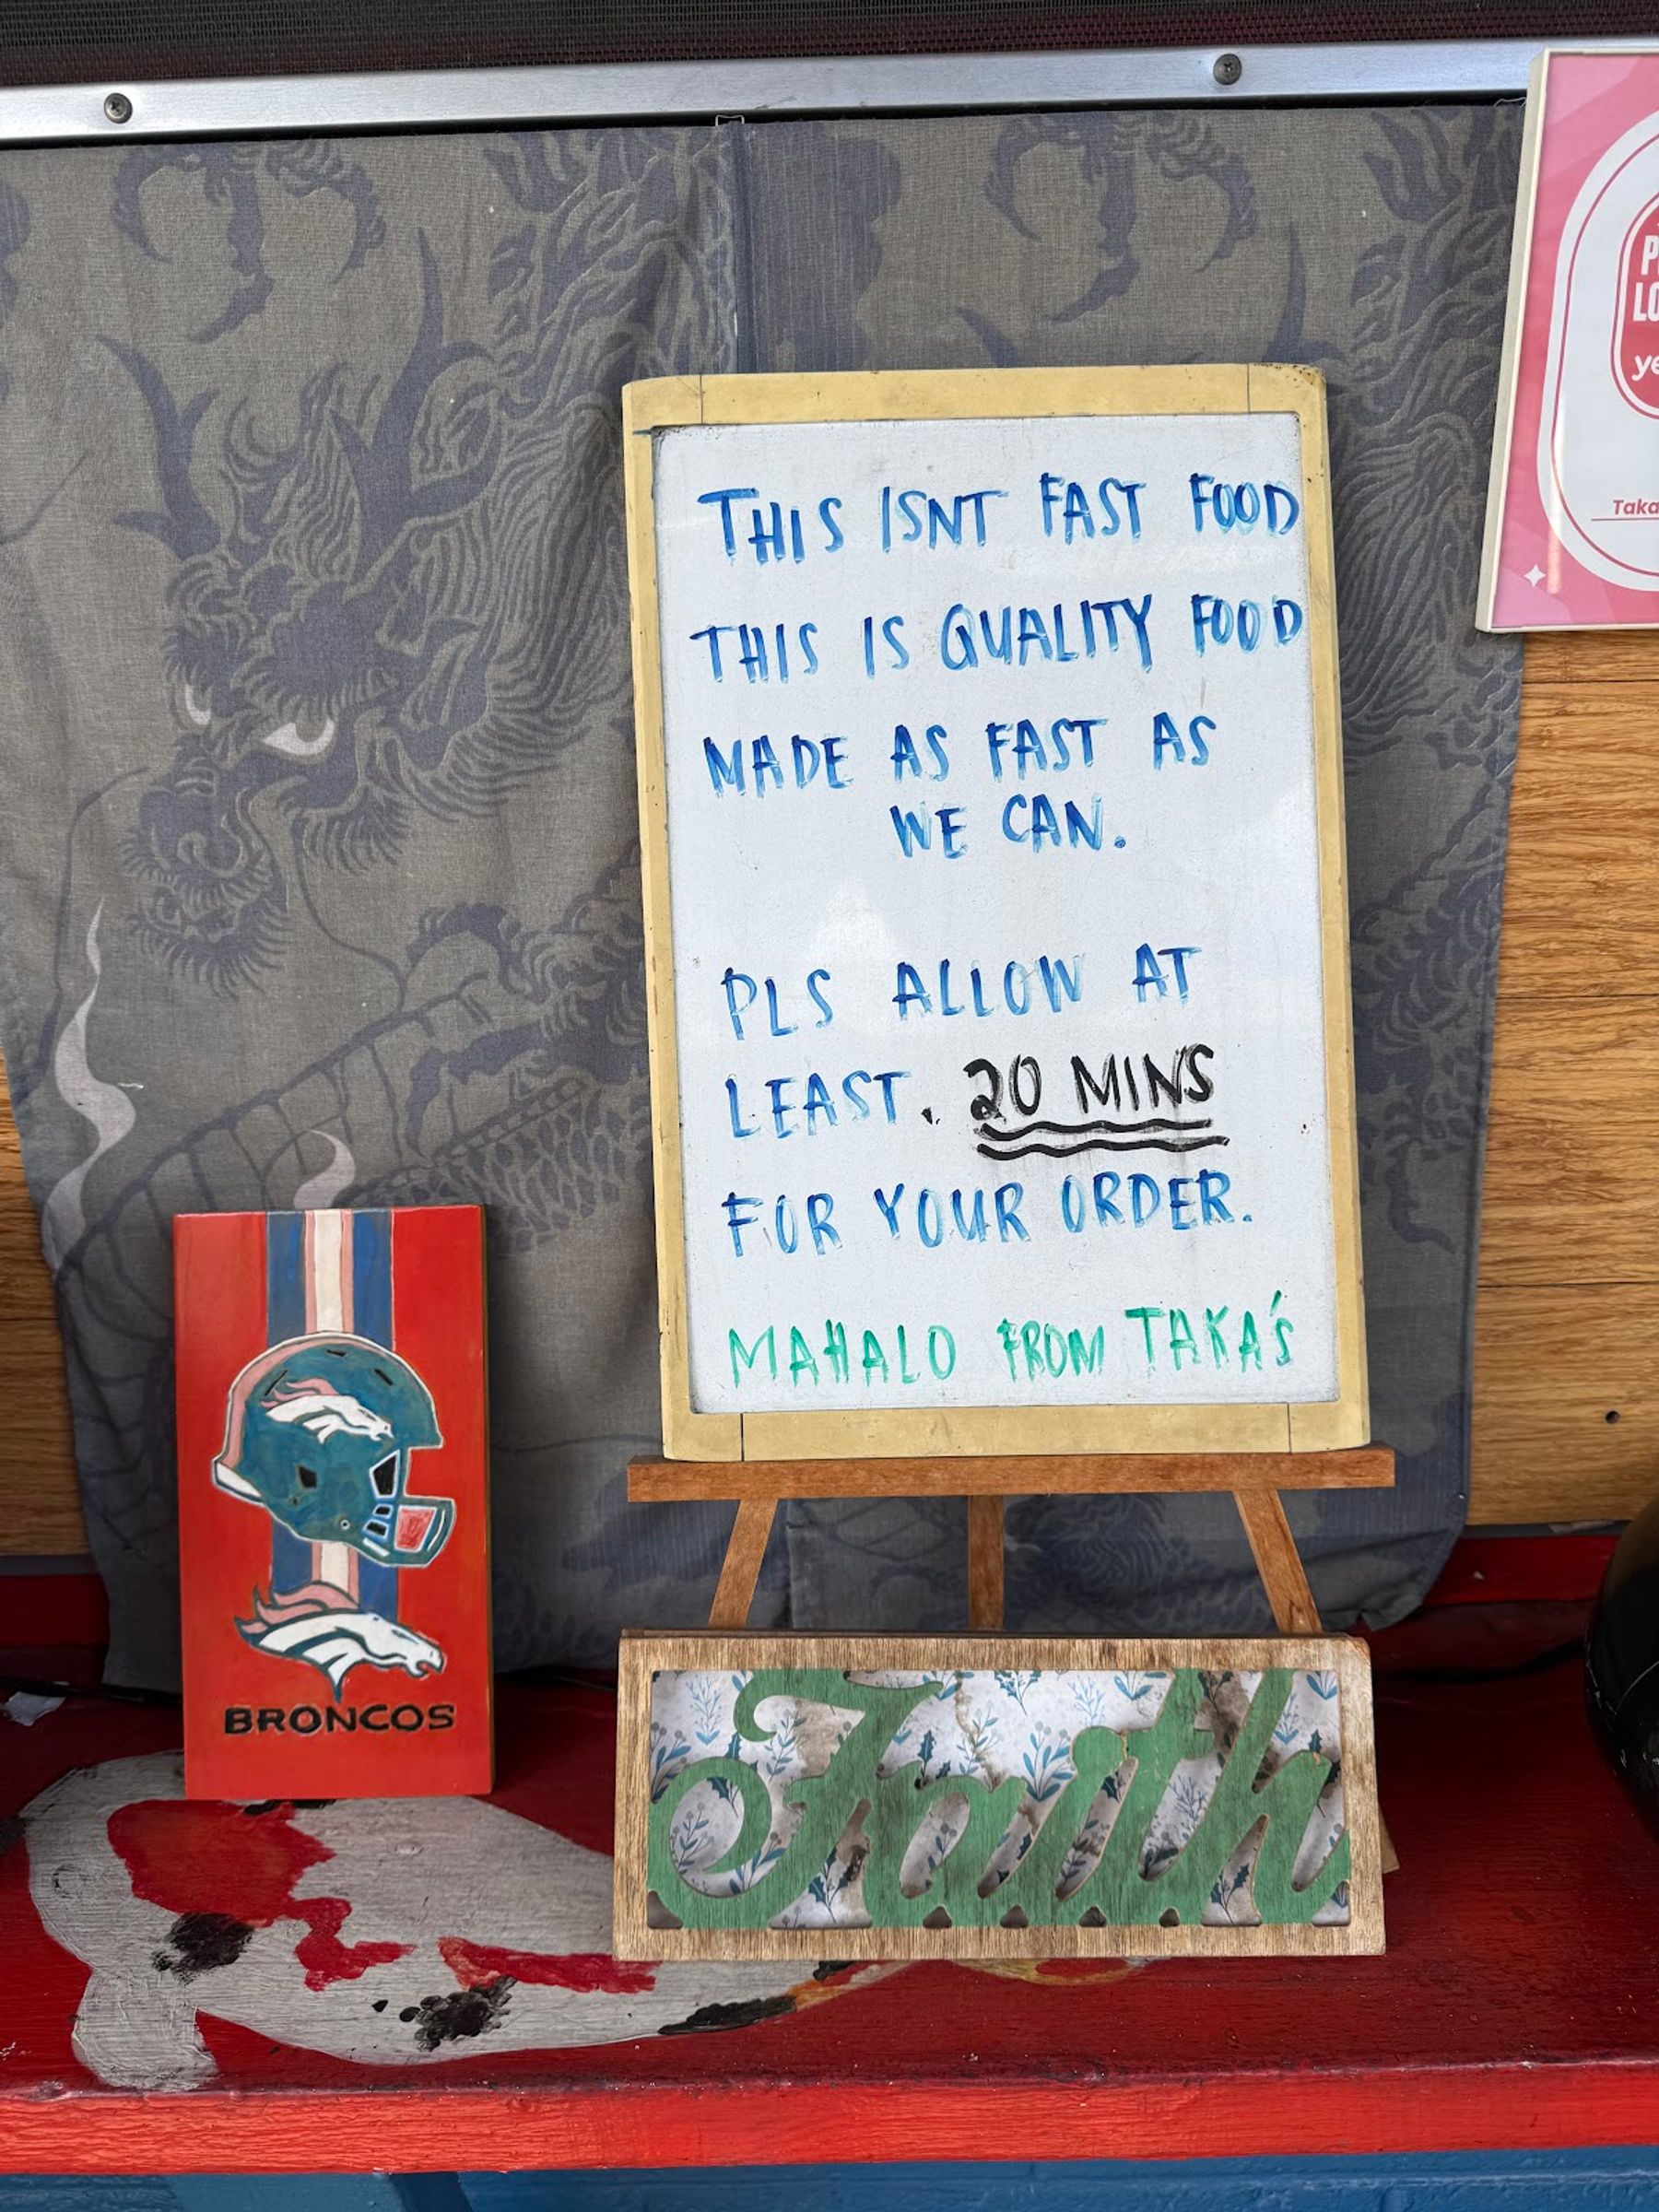 THIS ISNT FAST FOOD
THIS IS QUALITY FOOD
MADE AS FAST AS
WE CAN.
PLS ALLOW AT
LEAST. 20 MINS
FOR YOUR ORDER.
MAHALO FROM TAKA'S
BRONCOS
Faith
Taka